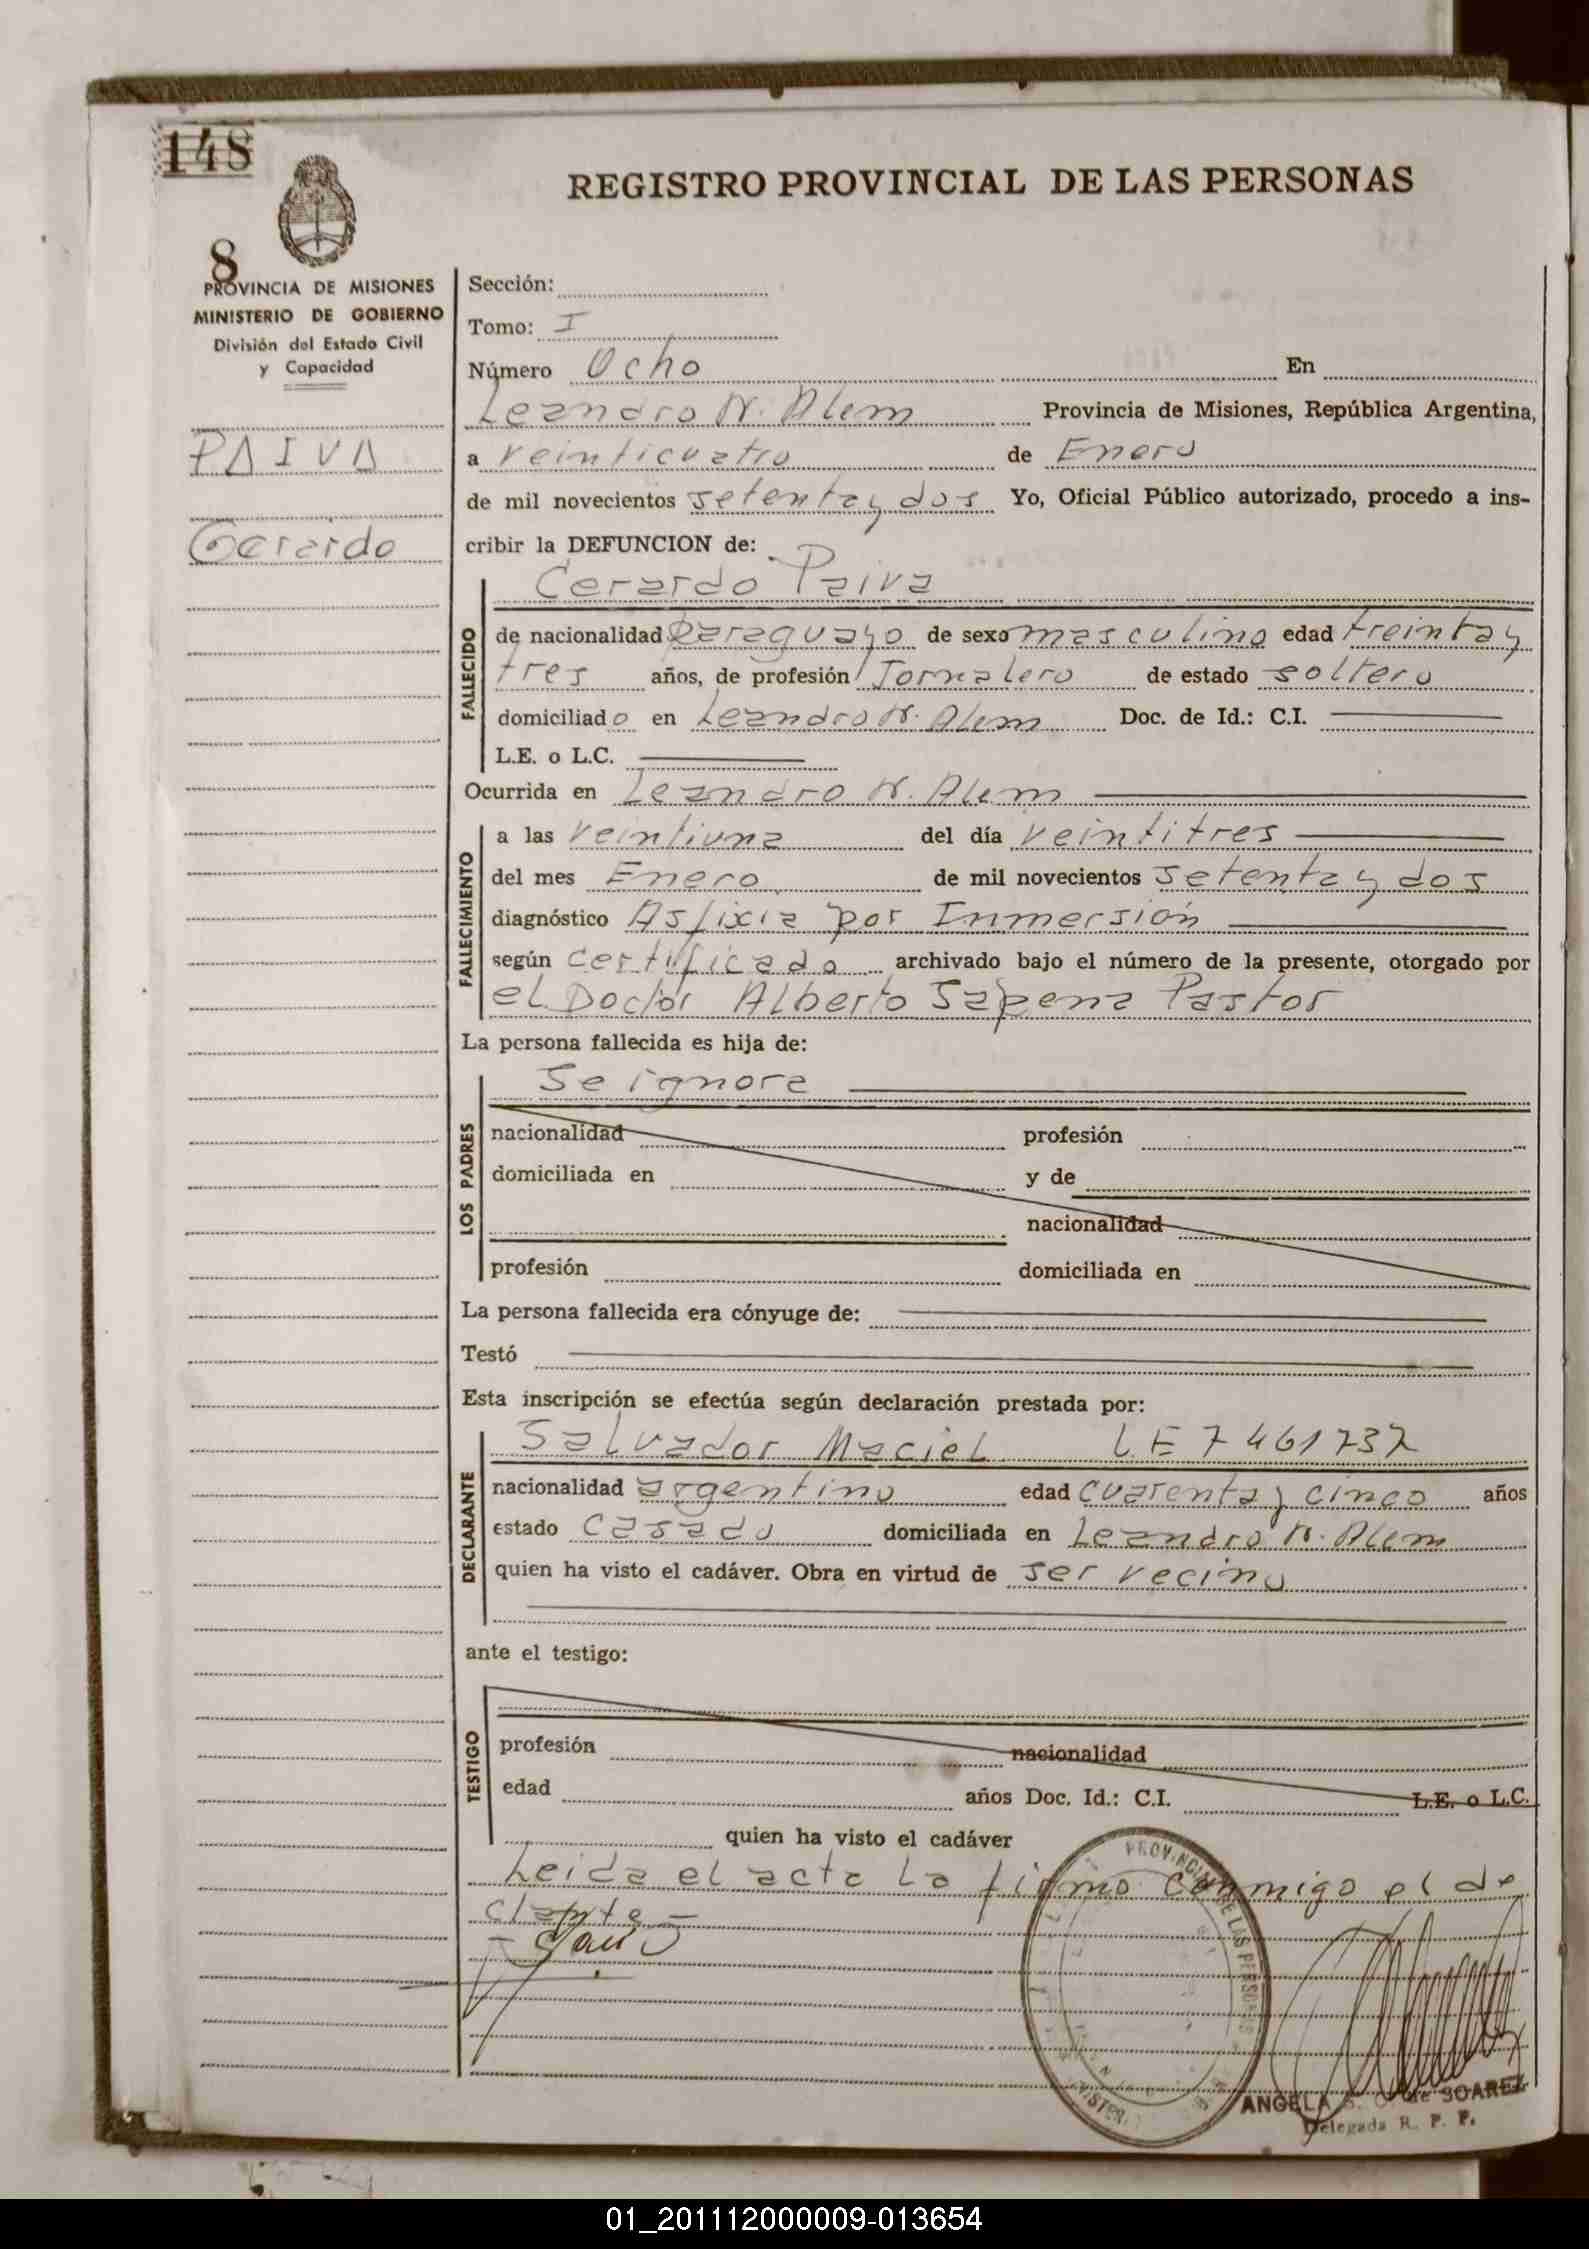 148
REGISTRO PROVINCIAL DE LAS PERSONAS
8
PROVINCIA DE MISIONES
MINISTERIO DE GOBIERNO
División del Estado Civil
y Capacidad
PAIVA
Gerardo
Sección:
Tomo: I
Número Ocho En
Leandro N. Alem Provincia de Misiones, República Argentina,
a veinticuatro de Enero
de mil novecientos setenta y dos Yo, Oficial Público autorizado, procedo a ins-
cribir la DEFUNCION de:
Gerardo Paiva
FALLECIDO
de nacionalidad Paraguayo de sexo masculino edad treinta y
tres años, de profesión Jornalero de estado soltero
domiciliado en Leandro N. Alem Doc. de Id.: C.I.
L.E. o L.C.
Ocurrida en Leandro N. Alem
FALLECIMIENTO
a las veintiuna del día veintitres
del mes Enero de mil novecientos setenta y dos
diagnóstico Asfixia por Inmersión
según certificado archivado bajo el número de la presente, otorgado por
el Doctor Alberto Sapena Pastor
La persona fallecida es hija de:
LOS PADRES
Se ignora
nacionalidad profesión
domiciliada en y de
nacionalidad
profesión domiciliada en
La persona fallecida era cónyuge de:
Testó
Esta inscripción se efectúa según declaración prestada por:
DECLARANTE
Salvador Maciel LE 7461737
nacionalidad argentino edad cuarenta y cinco años
estado casado domiciliada en Leandro N. Alem
quien ha visto el cadáver. Obra en virtud de ser vecino
ante el testigo:
TESTIGO
profesión nacionalidad
edad años Doc. Id.: C.I. L.E. o L.C.
quien ha visto el cadáver
Leida el acta la firmo conmigo el de
clarnte -
PROVINCIAL DE LAS PERSONAS
ANGELA S. de SOAREZ
Delegada R. P. P.
01_201112000009-013654